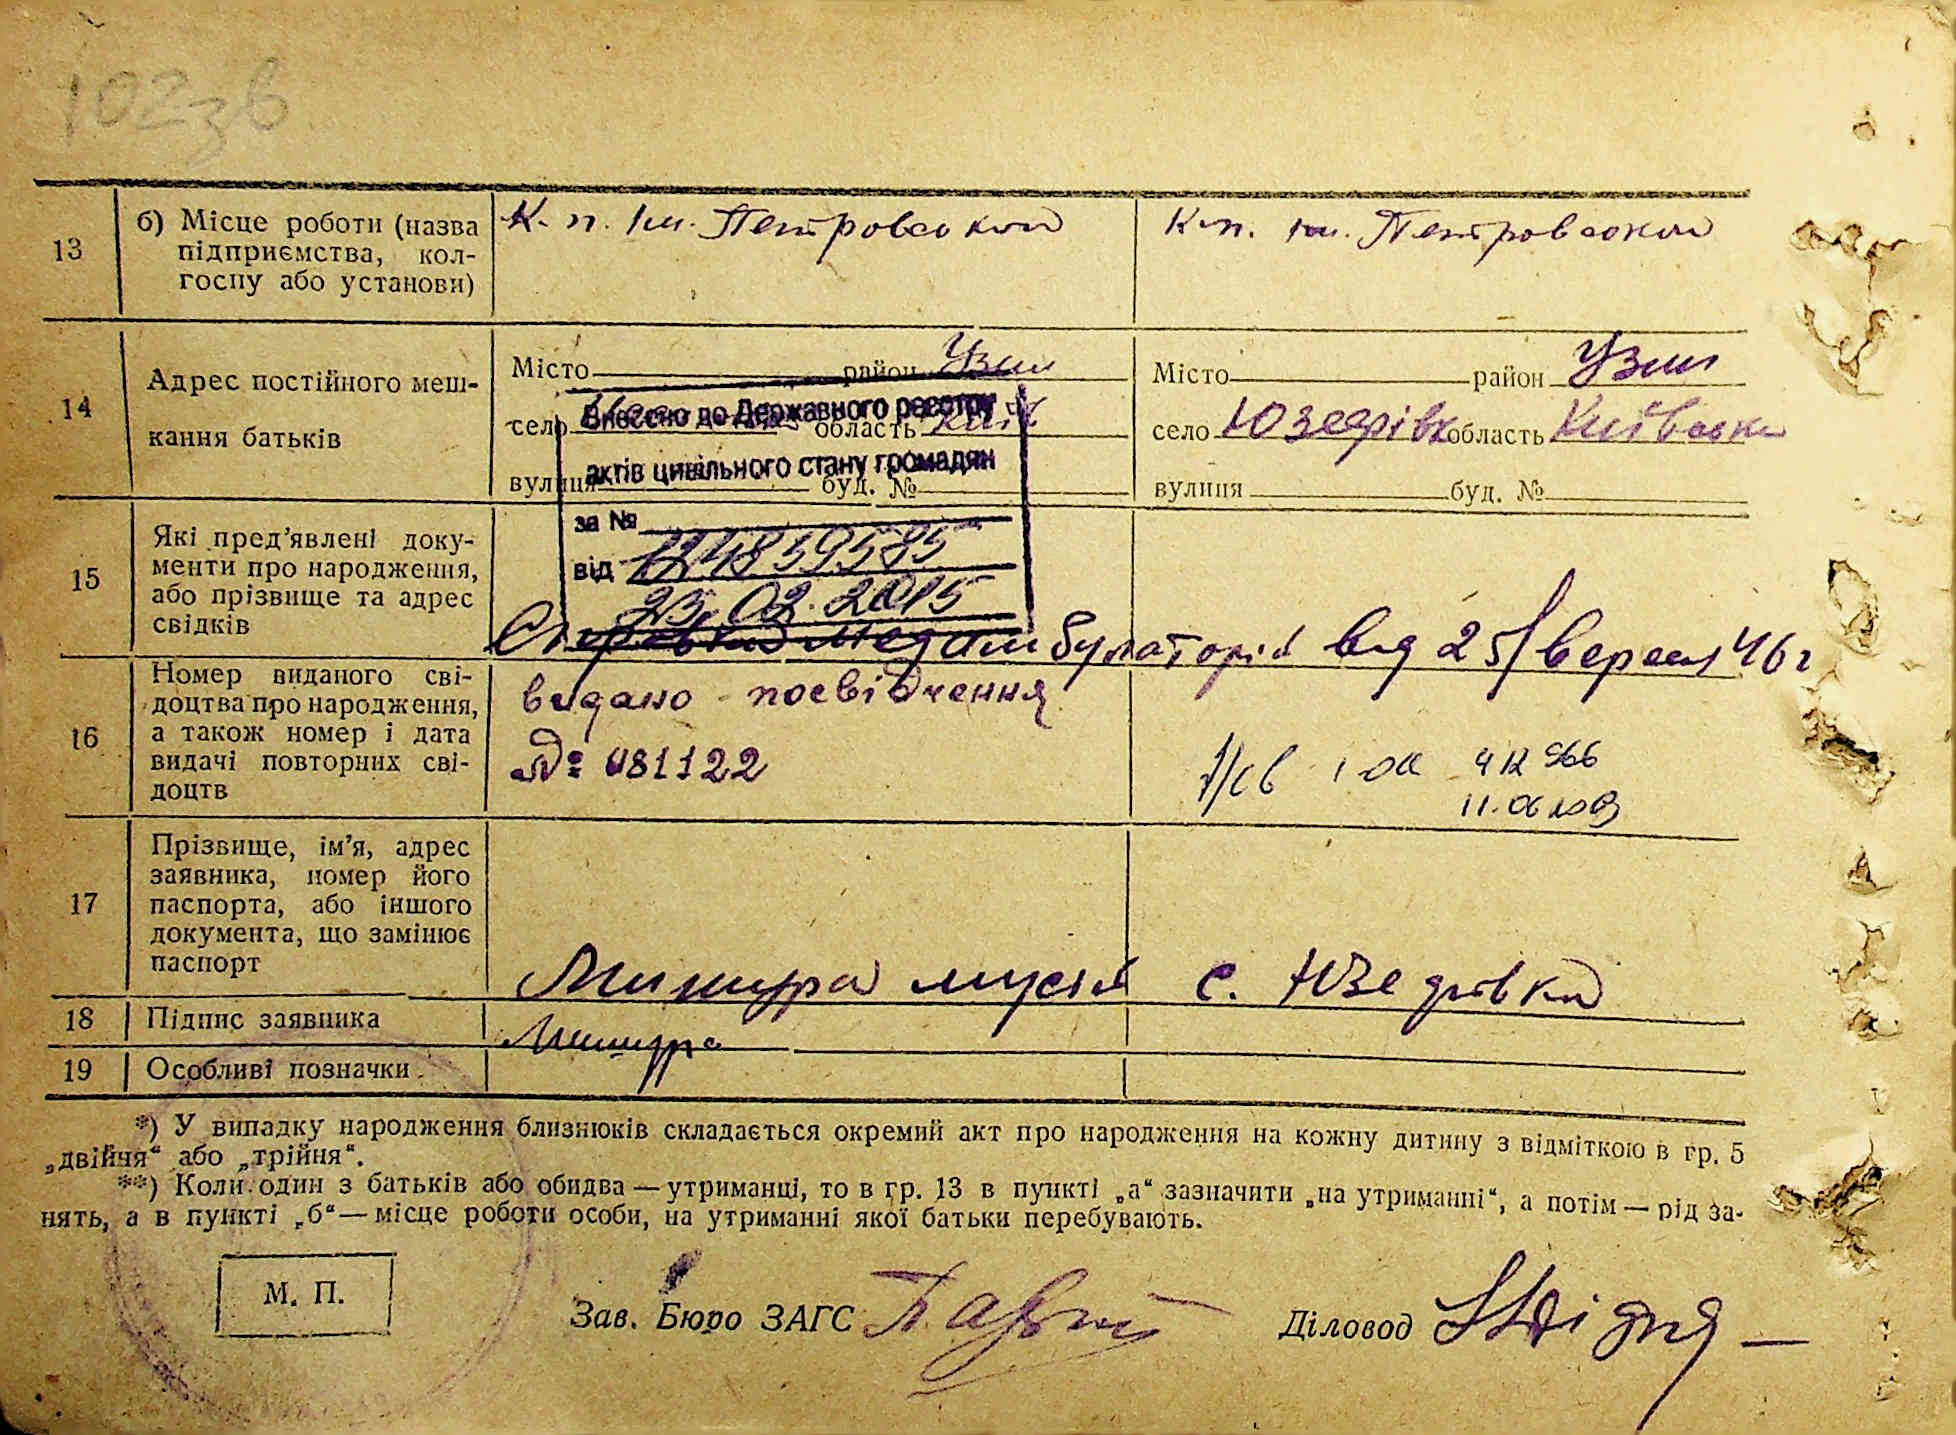 102зв
13
б) Місце роботи (назва
підприємства, кол-
госпу або установи)
К. п. Ім. Петровського
К. п. Ім. Петровського
14
Адрес постійного меш-
кання батьків
Місто район Узин
село область Київ
вулиця буд. №
Місто район Узин
село Юзефівк область Київська
вулиця буд. №
Внесено до Державного реєстру
актів цивільного стану громадян
за №
124859585
від
23.02.2015
15
Які пред’явлені доку-
менти про народження,
або прізвище та адрес
свідків
медамбулаторія від 25/вересня 46 г
16
Номер виданого сві-
доцтва про народження,
а також номер і дата
видачі повторних сві-
доцтв
видано посвідчення
№ 081122
11.06
17
Прізвище, ім’я, адрес
заявника, номер його
паспорта, або іншого
документа, що замінює
паспорт
Мишура мусій с. Юзефівка
18
Підпис заявника
Мишура
19
Особливі позначки
*) У випадку народження близнюків складається окремий акт про народження на кожну дитину з відміткою в гр. 5
„двійня“ або „трійня“.
**) Коли один з батьків або обидва — утриманці, то в гр. 13 в пункті „а“ зазначити „на утриманні“, а потім — рід за-
нять, а в пункті „б“ — місце роботи особи, на утриманні якої батьки перебувають.
М. П.
Зав. Бюро ЗАГС
Діловод